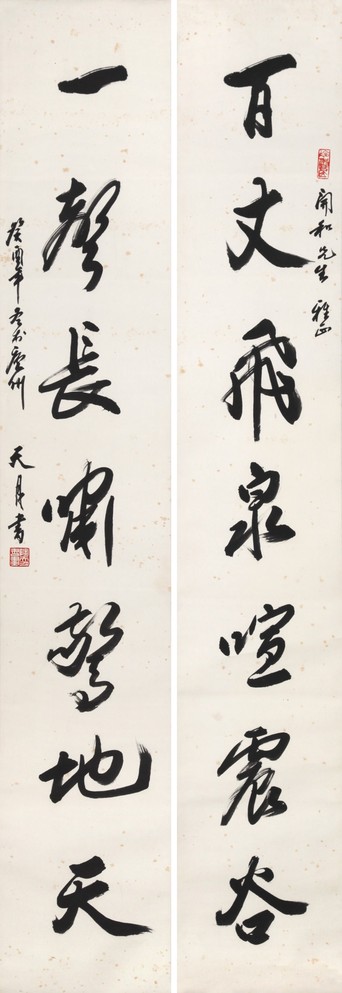 百丈飛泉喧震谷
開和先生 雅正
一聲長嘯驚地天
癸酉年冬於廣州
天月書